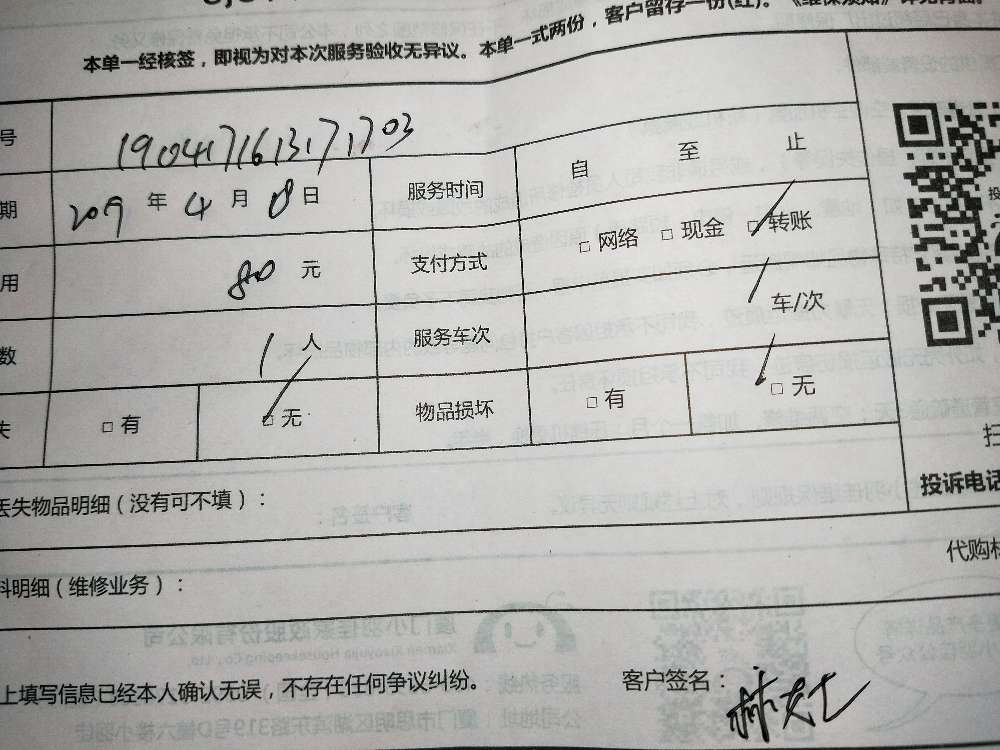 本单一经核签，即视为对本次服务验收无异议。本单一式两份，客户留存一份(红)。《维保须知》详见背面。
号 1904171613171703
期 2019 年 4 月 18 日 服务时间 自 至 止
用 80 元 支付方式 □ 网络 □ 现金 □ 转账
数 1 人 服务车次 / 车/次
失 □ 有 □ 无 物品损坏 □ 有 □ 无
丢失物品明细（没有可不填）：
投诉电话
代购
料明细（维修业务）：
上填写信息已经本人确认无误，不存在任何争议纠纷。 客户签名：